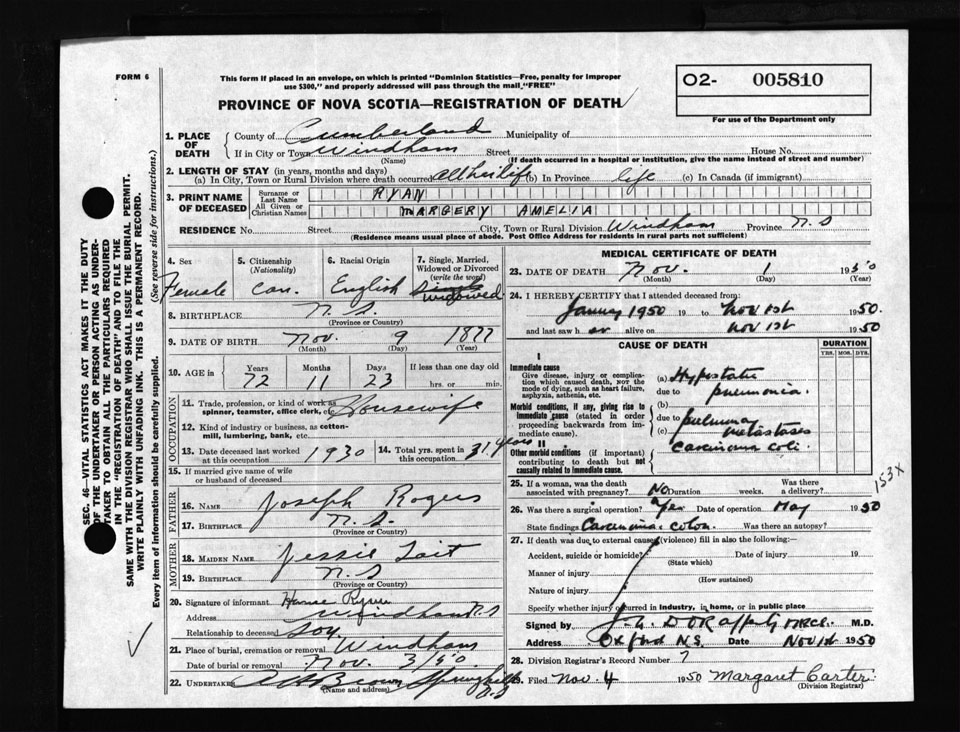 FORM 6
This form if placed in an envelope, on which is printed "Dominion Statistics—Free, penalty for improper
use $300," and properly addressed will pass through the mail "FREE"
PROVINCE OF NOVA SCOTIA—REGISTRATION OF DEATH
O2- 005810
For use of the Department only
SEC. 46—VITAL STATISTICS ACT MAKES IT THE DUTY
OF THE UNDERTAKER OR PERSON ACTING AS UNDER-
TAKER TO OBTAIN ALL THE PARTICULARS REQUIRED
IN THE "REGISTRATION OF DEATH" AND TO FILE THE
SAME WITH THE DIVISION REGISTRAR WHO SHALL ISSUE THE BURIAL PERMIT.
WRITE PLAINLY WITH UNFADING INK. THIS IS A PERMANENT RECORD.
Every item of information should be carefully supplied. (See reverse side for instructions.)
1. PLACE OF DEATH
County of Cumberland Municipality of
If in City or Town Windham Street House No.
(Name) (If death occurred in a hospital or institution, give the name instead of street and number)
2. LENGTH OF STAY (in years, months and days)
(a) In City, Town or Rural Division where death occurred all her life (b) In Province life (c) In Canada (if immigrant)
3. PRINT NAME OF DECEASED
Surname or Last Name RYAN
All Given or Christian Names MARGERY AMELIA
RESIDENCE No. Street City, Town or Rural Division Windham Province N.S
(Residence means usual place of abode. Post Office Address for residents in rural parts not sufficient)
4. Sex Female
5. Citizenship (Nationality) Can.
6. Racial Origin English
7. Single, Married, Widowed or Divorced (write the word) Widowed
8. BIRTHPLACE N.S.
(Province or Country)
9. DATE OF BIRTH Nov. 9 1877
(Month) (Day) (Year)
10. AGE in Years 72 Months 11 Days 23 If less than one day old
hrs. or min.
OCCUPATION
11. Trade, profession, or kind of work as spinner, teamster, office clerk, etc. Housewife
12. Kind of industry or business, as cotton-mill, lumbering, bank, etc.
13. Date deceased last worked at this occupation 1930
14. Total yrs. spent in this occupation 31 years
15. If married give name of wife or husband of deceased
FATHER
16. NAME Joseph Rogers
17. BIRTHPLACE N.S.
(Province or Country)
MOTHER
18. MAIDEN NAME Jessie Tait
19. BIRTHPLACE N.S
(Province or Country)
20. Signature of informant
Address Windham N.S
Relationship to deceased
21. Place of burial, cremation or removal Windham
Date of burial or removal Nov. 3/50
22. UNDERTAKER Brown Springhill N.S
(Name and address)
MEDICAL CERTIFICATE OF DEATH
23. DATE OF DEATH Nov. 1 1950
(Month) (Day) (Year)
24. I HEREBY CERTIFY that I attended deceased from:
January 1950 19 to Nov 1st 1950
and last saw h er alive on Nov 1st 1950
CAUSE OF DEATH DURATION
YRS. MOS. DYS.
I
Immediate cause
Give disease, injury or complication which caused death, NOT the mode of dying, such as heart failure, asphyxia, asthenia, etc.
(a) Hypostatic
due to pneumonia.
Morbid conditions, if any, giving rise to immediate cause (stated in order proceeding backwards from immediate cause).
(b)
due to pulmonary
(c) metastases
II
Other morbid conditions (if important) contributing to death but not causally related to immediate cause.
Carcinoma coli
25. If a woman, was the death associated with pregnancy? No Duration weeks. Was there a delivery?
153X
26. Was there a surgical operation? Yes Date of operation May 1950
State findings Carcinoma colon. Was there an autopsy?
27. If death was due to external causes (violence) fill in also the following:—
Accident, suicide or homicide? Date of injury 19
(State which)
Manner of injury
(How sustained)
Nature of injury
Specify whether injury occurred in industry, in home, or in public place
Signed by M.D.
Address Oxford N.S. Date Nov 1st 1950
28. Division Registrar's Record Number 7
29. Filed Nov. 4 1950 Margaret Carter
(Division Registrar)